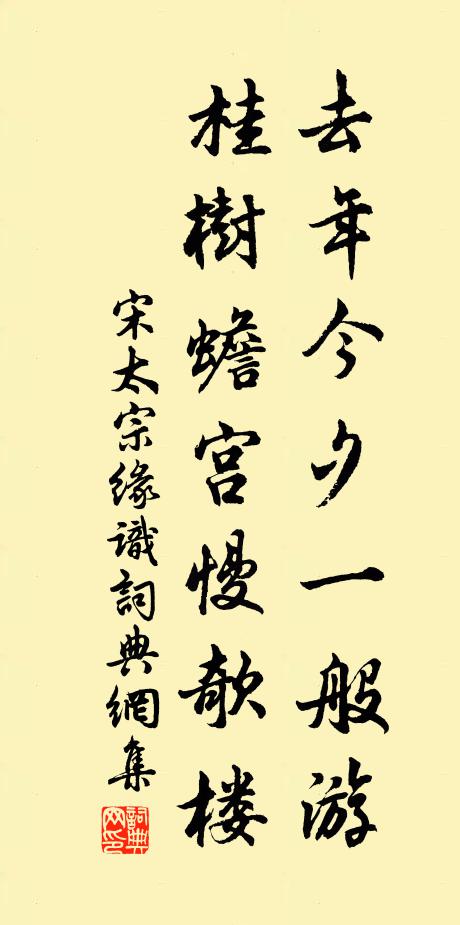 去年今夕一般游
桂樹蟾宫慢欹楼
宋太宗缘識詞典網集
詞典网印